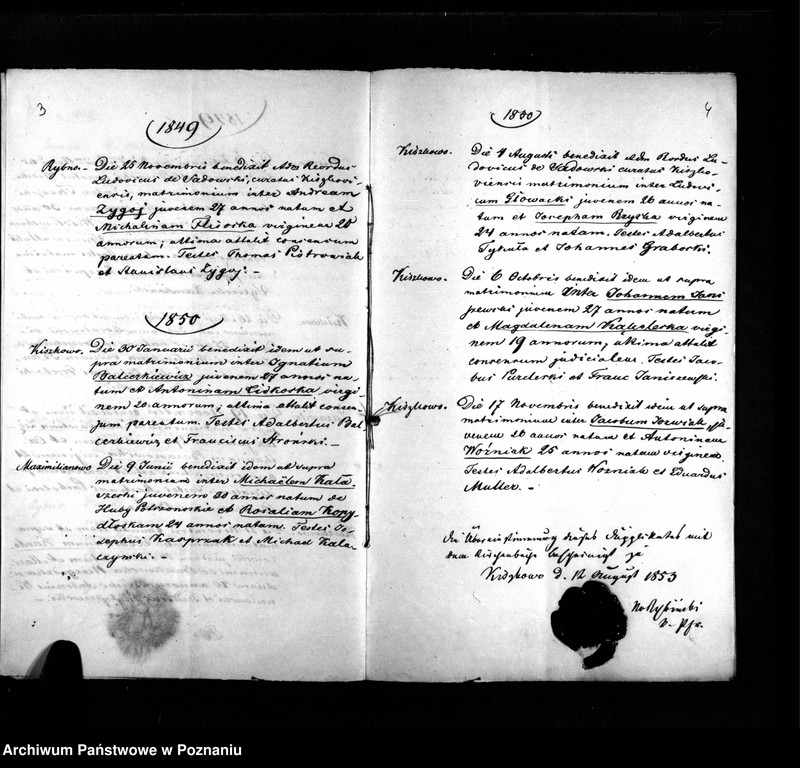 3
1849
Rybno. Die 25 Novembris benedixit Adm Rerdus
Ludovicus de Sadowski, curatus Kiszkovi-
ensis, matrimonium inter Andream
Zygoj juvenem 27 annos natum et
Michalinam virginem 20
annorum; ultima attulit consensum
parentum. Testes Thomas Piotrowiak
et Stanislaus Zygoj. –
1850
Kiszkowo. Die 30 Januarii benedixit idem ut su-
pra matrimonium inter Ignatium
Balcerkiewicz juvenem 27 annos na-
tum et Antoninam virgi-
nem 20 annorum; ultima attulit consen-
sum parentum. Testes Adalbertus Bal
cerkiewicz et Franciscus –
Maximilianowo Die 9 Junii benedixit idem ut supra
matrimonium inter Michaelem Kala-
juvenem 30 annos natum de
Huby et Rosaliam Kopy-
dloskam 24 annos natam. Testes Jo-
sephus Kasprzak et Michael Kala-
czynski. –
4
1850
Kiszkowo. Die 4 Augusti benedixit Adm Rerdus Lu-
dovicus de Sadowski curatus Kiszko-
viensis matrimonium inter Ludovi-
cum Glowacki juvenem 26 annos na-
tum et Josepham Bzyska virginem
24 annos natam. Testes Adalbertus
et Johannes Graboski.
Kiszkowo. Die 6 Octobris benedixit idem ut supra
matrimonium inter Johannem Jani
szewski juvenem 27 annos natum
et Magdalenam virgi-
nem 19 annorum; ultima attulit
consensum judicialem. Testes Jaco-
bus et Franc Janiszewski.
Kiszkowo. Die 17 Novembris benedixit idem ut supra
matrimonium inter Jacobum Jozwiak ju-
venem 20 annos natum et Antoninam
Woźniak 25 annos natam virginem
Testes Adalbertus Wozniak et Eduardus
Muller. –
Die Übereinstimmung dieses Duplikates mit
dem Kirchenbuche bescheinigt
Kiszkowo d. 12 August 1853
Archiwum Państwowe w Poznaniu